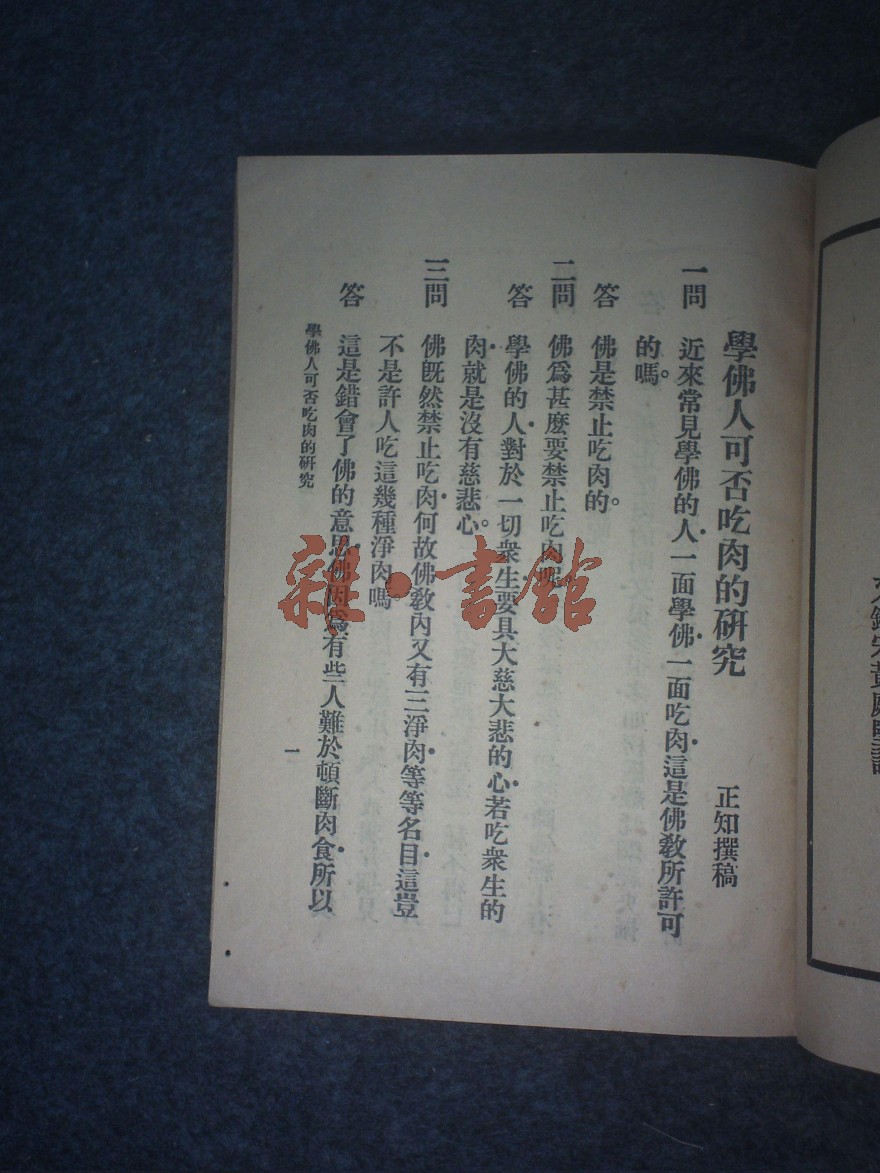 學佛人可否吃肉的研究
正知撰稿
一問 近來常見學佛的人一面學佛一面吃肉這是佛教所許可
的嗎。
答 佛是禁止吃肉的。
二問 佛爲甚麽要禁止吃肉呢。
答 學佛的人對於一切衆生要具大慈大悲的心若吃衆生的
肉就是沒有慈悲心。
三問 佛旣然禁止吃肉何故佛教內又有三淨肉等等名目這豈
不是許人吃這幾種淨肉嗎。
答 這是錯會了佛的意思佛因爲有些人難於頓斷肉食所以
學佛人可否吃肉的研究
一
雜·書館